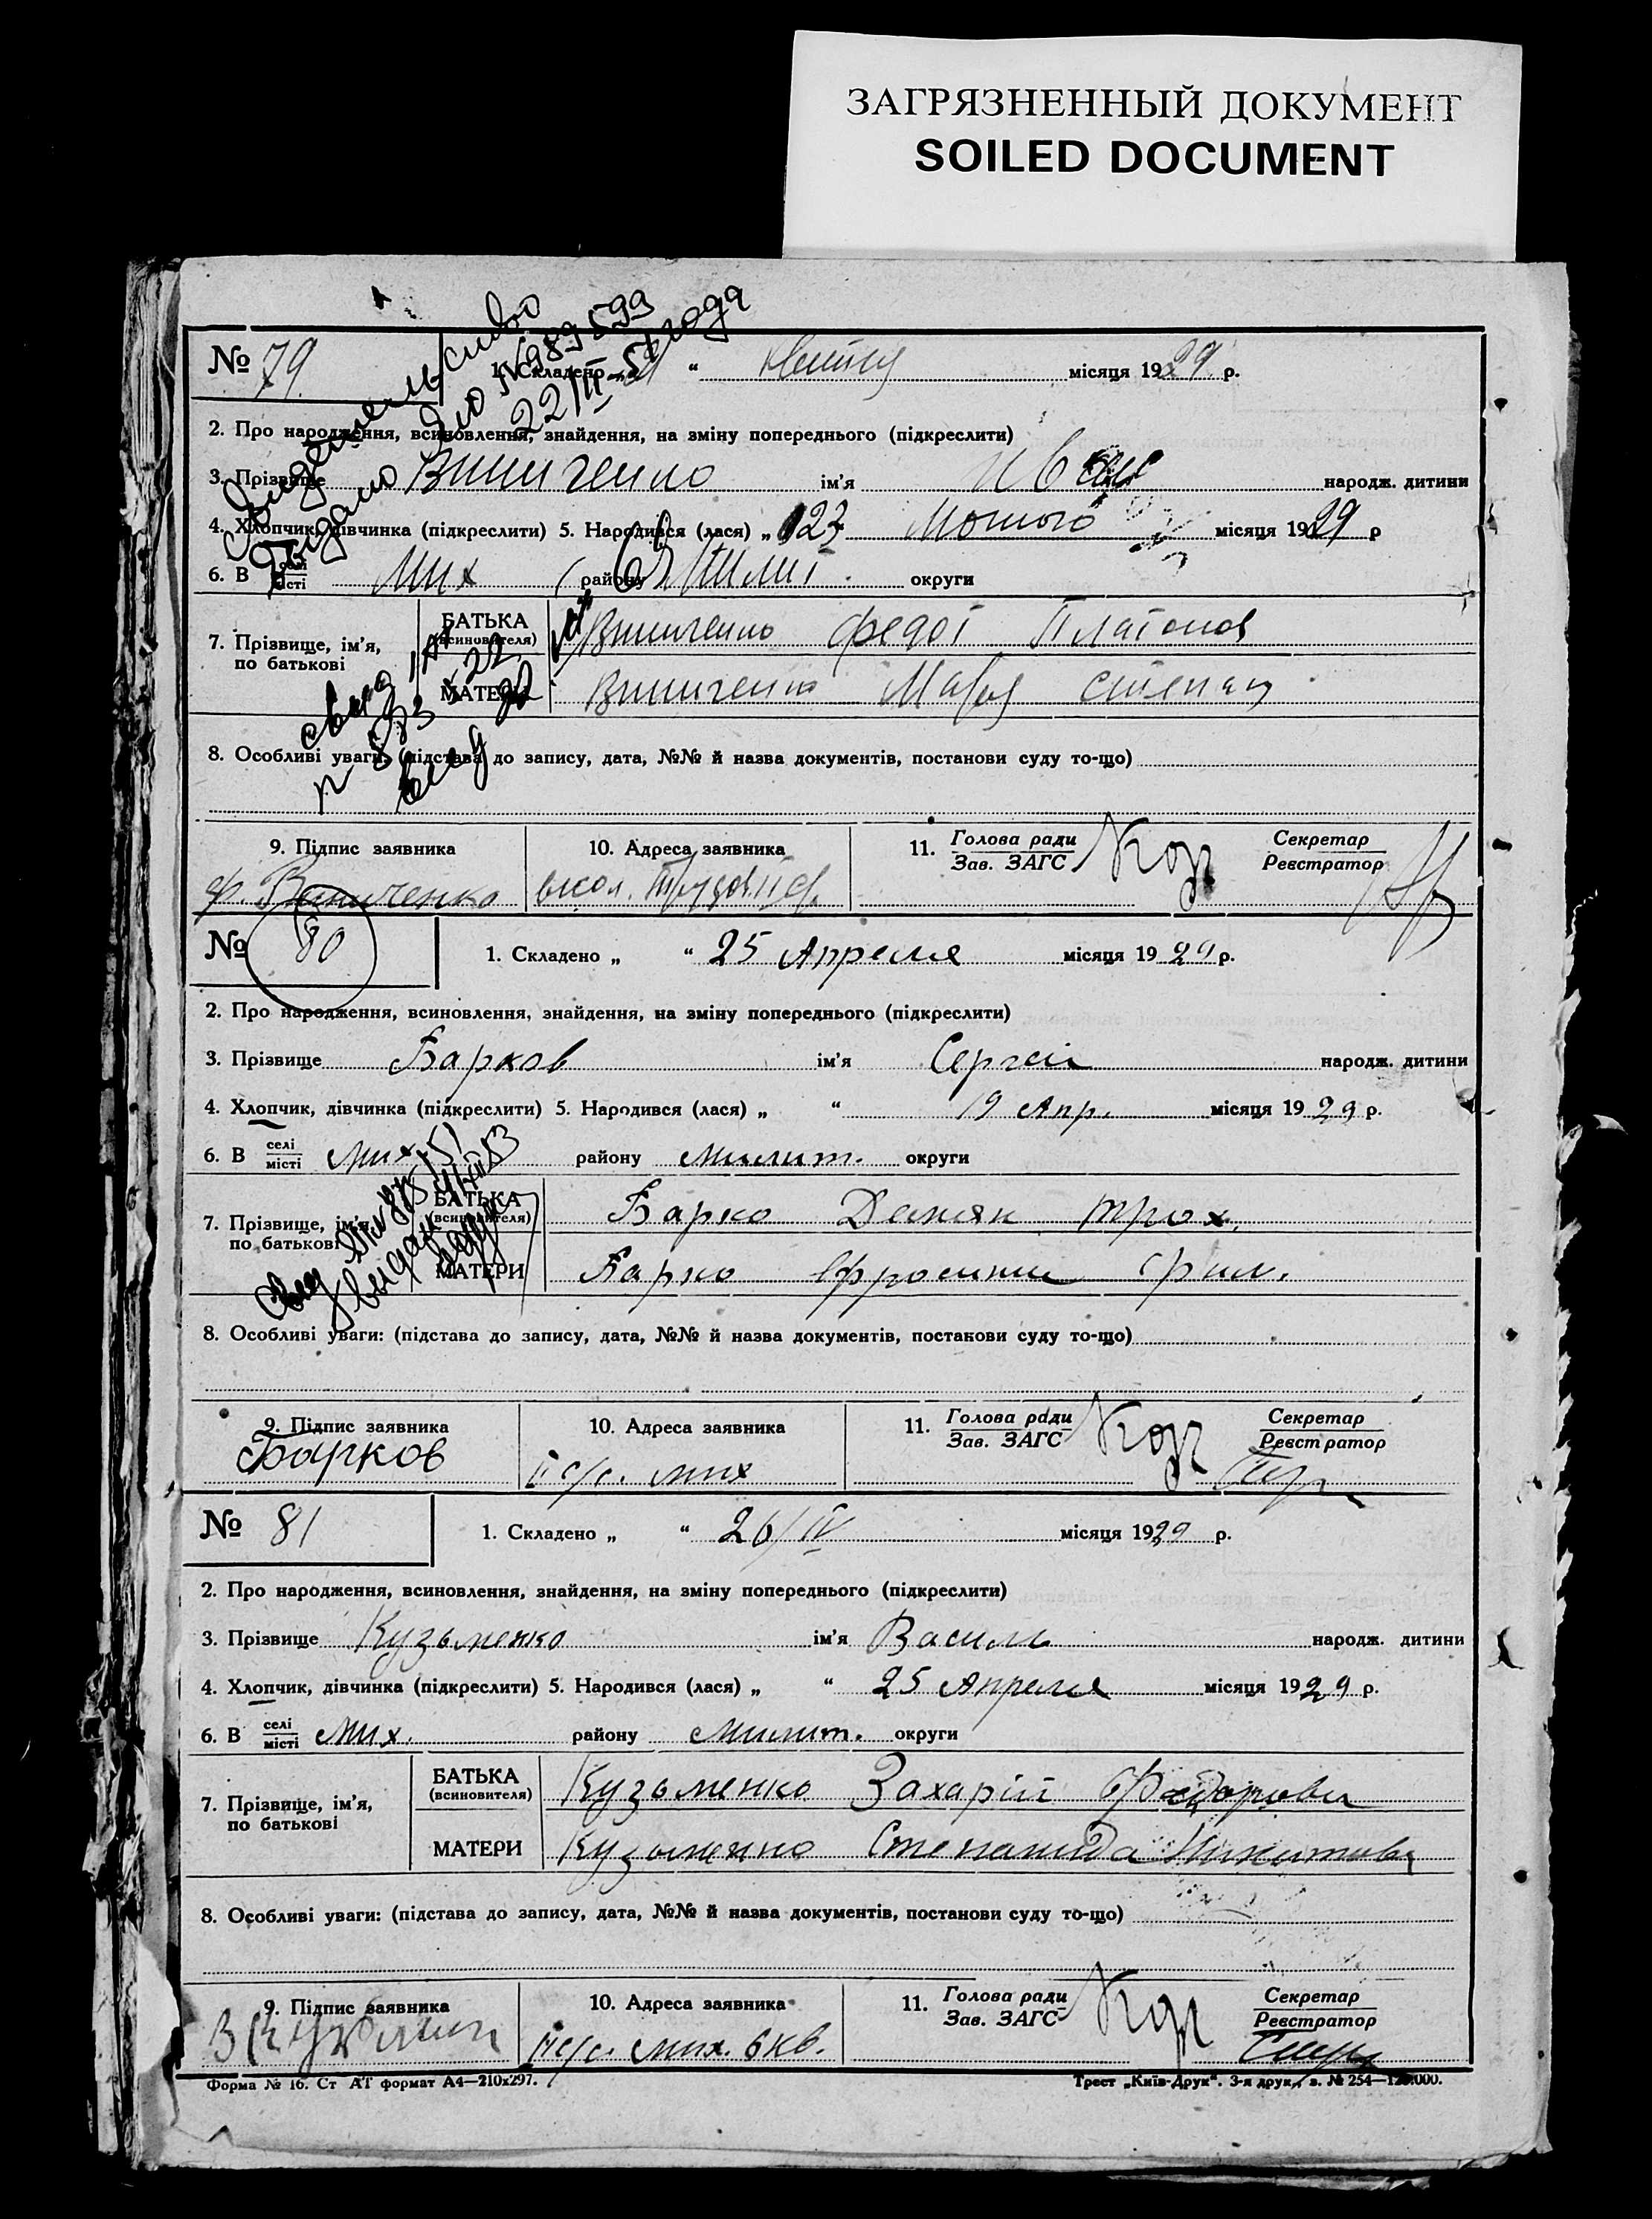 ЗАГРЯЗНЕННЫЙ ДОКУМЕНТ
SOILED DOCUMENT
№ 79. 1. Складено „ “ квітня місяця 1929. р.
2. Про народження, всиновлення, знайдення, на зміну попереднього (підкреслити)
3. Прізвище Винниченко ім'я Іван народж. дитини
4. Хлопчик, дівчинка (підкреслити) 5. Народився (лася) „ 23 місяця 1929 р
6. В селі місті Мих району Мелит. округи
7. Прізвище, ім'я, по батькові БАТЬКА (всиновителя) Винниченко Федот Платонов
МАТЕРИ Винниченко Марія Степан
8. Особливі уваги: (підстава до запису, дата, №№ й назва документів, постанови суду то-що)
Свидетельство
выдано № 989599
22/II-51 года
9. Підпис заявника 10. Адреса заявника 11. Голова ради Зав. ЗАГС Секретар Реєстратор
Ф. Винниченко
№ 80 1. Складено „ “ 25 Апреля місяця 1929 р.
2. Про народження, всиновлення, знайдення, на зміну попереднього (підкреслити)
3. Прізвище Барков ім'я Сергей народж. дитини
4. Хлопчик, дівчинка (підкреслити) 5. Народився (лася) „ “ 19 Апр. місяця 1929 р.
6. В селі місті Мих. району Мелит. округи
7. Прізвище, ім'я, по батькові БАТЬКА (всиновителя) Барко Демян Трох.
МАТЕРИ Барко Ефросиния
8. Особливі уваги: (підстава до запису, дата, №№ й назва документів, постанови суду то-що)
9. Підпис заявника 10. Адреса заявника 11. Голова ради Зав. ЗАГС Секретар Реєстратор
Барков с/с. Мих Кор
№ 81 1. Складено „ “ 26/IV місяця 1929 р.
2. Про народження, всиновлення, знайдення, на зміну попереднього (підкреслити)
3. Прізвище Кузьменко ім'я Василь народж. дитини
4. Хлопчик, дівчинка (підкреслити) 5. Народився (лася) „ “ 25 Апреля місяця 1929 р.
6. В селі місті Мих. району Мелит. округи
7. Прізвище, ім'я, по батькові БАТЬКА (всиновителя) Кузьменко Захарій Федорови
МАТЕРИ Кузьменко Степанида Никитовн
8. Особливі уваги: (підстава до запису, дата, №№ й назва документів, постанови суду то-що)
9. Підпис заявника 10. Адреса заявника 11. Голова ради Зав. ЗАГС Секретар Реєстратор
с/с. Мих. 6 кв. Кор
Форма № 16. Ст АТ формат А4—210х297. Трест „Київ-Друк“. 3-я друк., з. № 254—